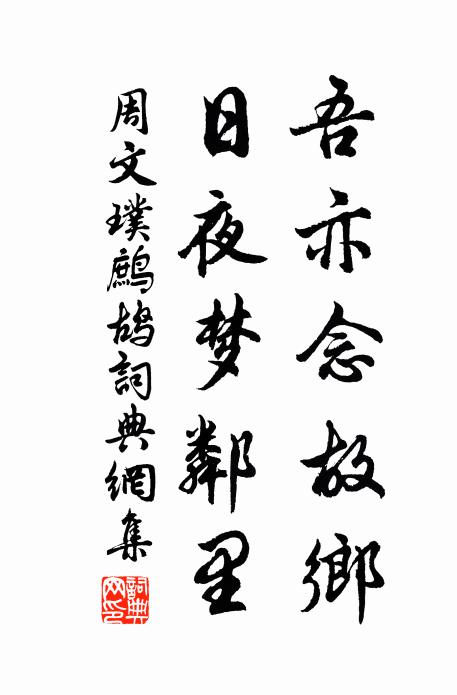 吾亦念故鄉
日夜梦鄰里
周文璞鷓鴣詞典網集
詞典網印